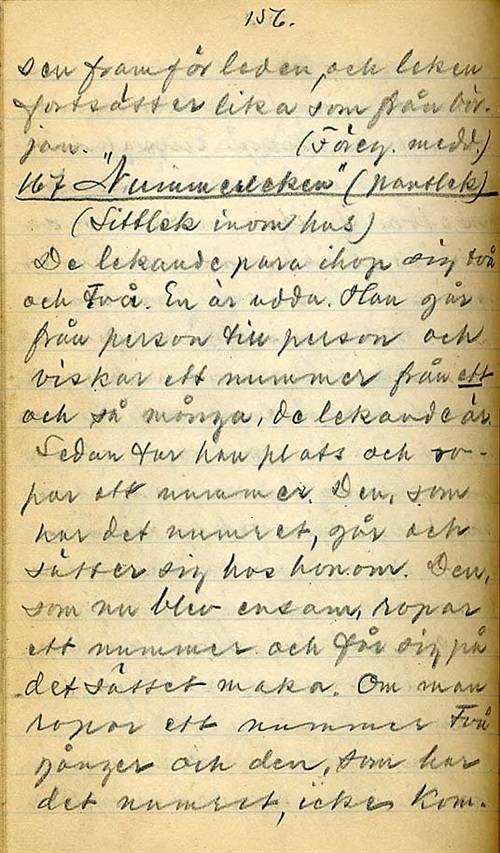 156.
sen framför leden, och leken
fortsätter lika som från bör-
jan. (Föreg. medd.)
167 "Nummerleken" (pantlek)
(Sittlek inom hus)
De lekande para ihop sig två
och två. En är udda. Han går
från person till person och
viskar ett nummer från ett
och så många, de lekande är.
Sedan tar han plats och ro-
par ett nummer. Den, som
har det numret, går och
sätter sig hos honom. Den,
som nu blev ensam, ropar
ett nummer och får sig på
det sättet maka. Om man
ropar ett nummer två
gånger och den, som har
det numret, icke kom-